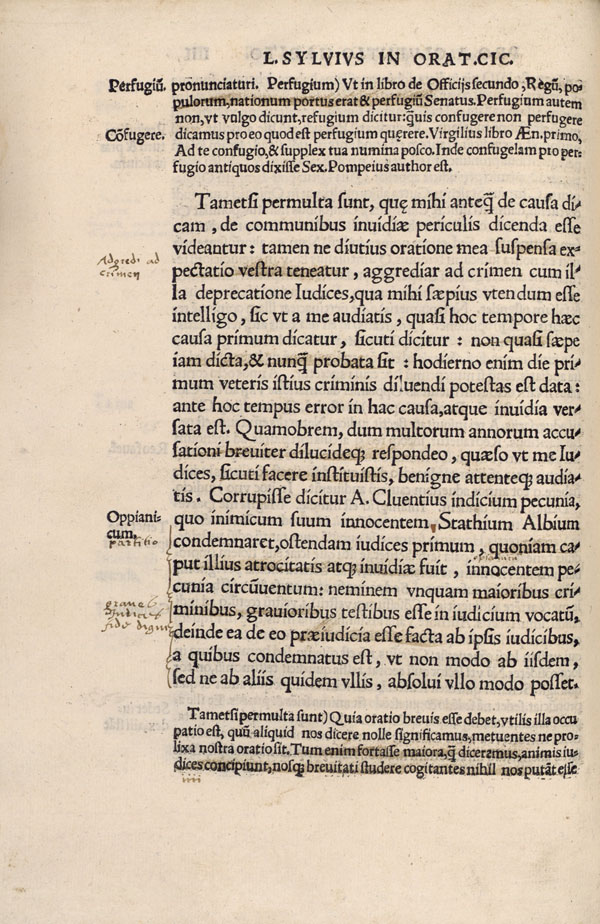 L. SYLVIVS IN ORAT. CIC.
Perfugiũ. pronunciaturi. Perfugium) Vt in libro de Officijs secundo, Regũ, po-
pulorum, nationum portus erat & perfugiũ Senatus. Perfugium autem
non, vt vulgo dicunt, refugium dicitur: quis confugere non perfugere
Cõfugere. dicamus pro eo quod est perfugium quęrere. Virgilius libro Æn. primo,
Ad te confugio, & supplex tua numina posco. Inde confugelam pro per-
fugio antiquos dixisse Sex. Pompeius author est.
Tametsi permulta sunt, quę mihi anteq̃ de causa di-
cam, de communibus inuidiæ periculis dicenda esse
videantur: tamen ne diutius oratione mea suspensa ex-
Adgredi ad
crimen
pectatio vestra teneatur, aggrediar ad crimen cum il-
la deprecatione Iudices, qua mihi sæpius vtendum esse
intelligo, sic vt a me audiatis, quasi hoc tempore hæc
causa primum dicatur, sicuti dicitur: non quasi sæpe
iam dicta, & nunq̃ probata sit: hodierno enim die pri-
mum veteris istius criminis diluendi potestas est data:
ante hoc tempus error in hac causa, atque inuidia ver-
sata est. Quamobrem, dum multorum annorum accu-
sationi breuiter dilucideq; respondeo, quæso vt me Iu-
dices, sicuti facere instituistis, benigne attenteq; audia-
tis. Corrupisse dicitur A. Cluentius indicium pecunia,
Oppiani-
cum.
partitio
quo inimicum suum innocentem, Stathium Albium
condemnaret, ostendam iudices primum, quoniam ca-
put illius atrocitatis atq; inuidiæ fuit, innocentem pe-
cunia circũuentum: neminem vnquam maioribus cri-
minibus, grauioribus testibus esse in iudicium vocatũ,
deinde ea de eo præiudicia esse facta ab ipsis iudicibus,
a quibus condemnatus est, vt non modo ab iisdem,
sed ne ab aliis quidem vllis, absolui vllo modo posset.
Tametsi permulta sunt) Quia oratio breuis esse debet, vtilis illa occu
patio est, quũ aliquid nos dicere nolle significamus, metuentes ne pro-
lixa nostra oratio sit. Tum enim fortasse maiora, q̃ diceremus, animis iu-
dices concipiunt, nosq; breuitati studere cogitantes nihil nos putãt esse